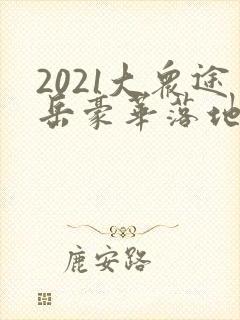 2021大众途
岳豪华落地
鹿安路